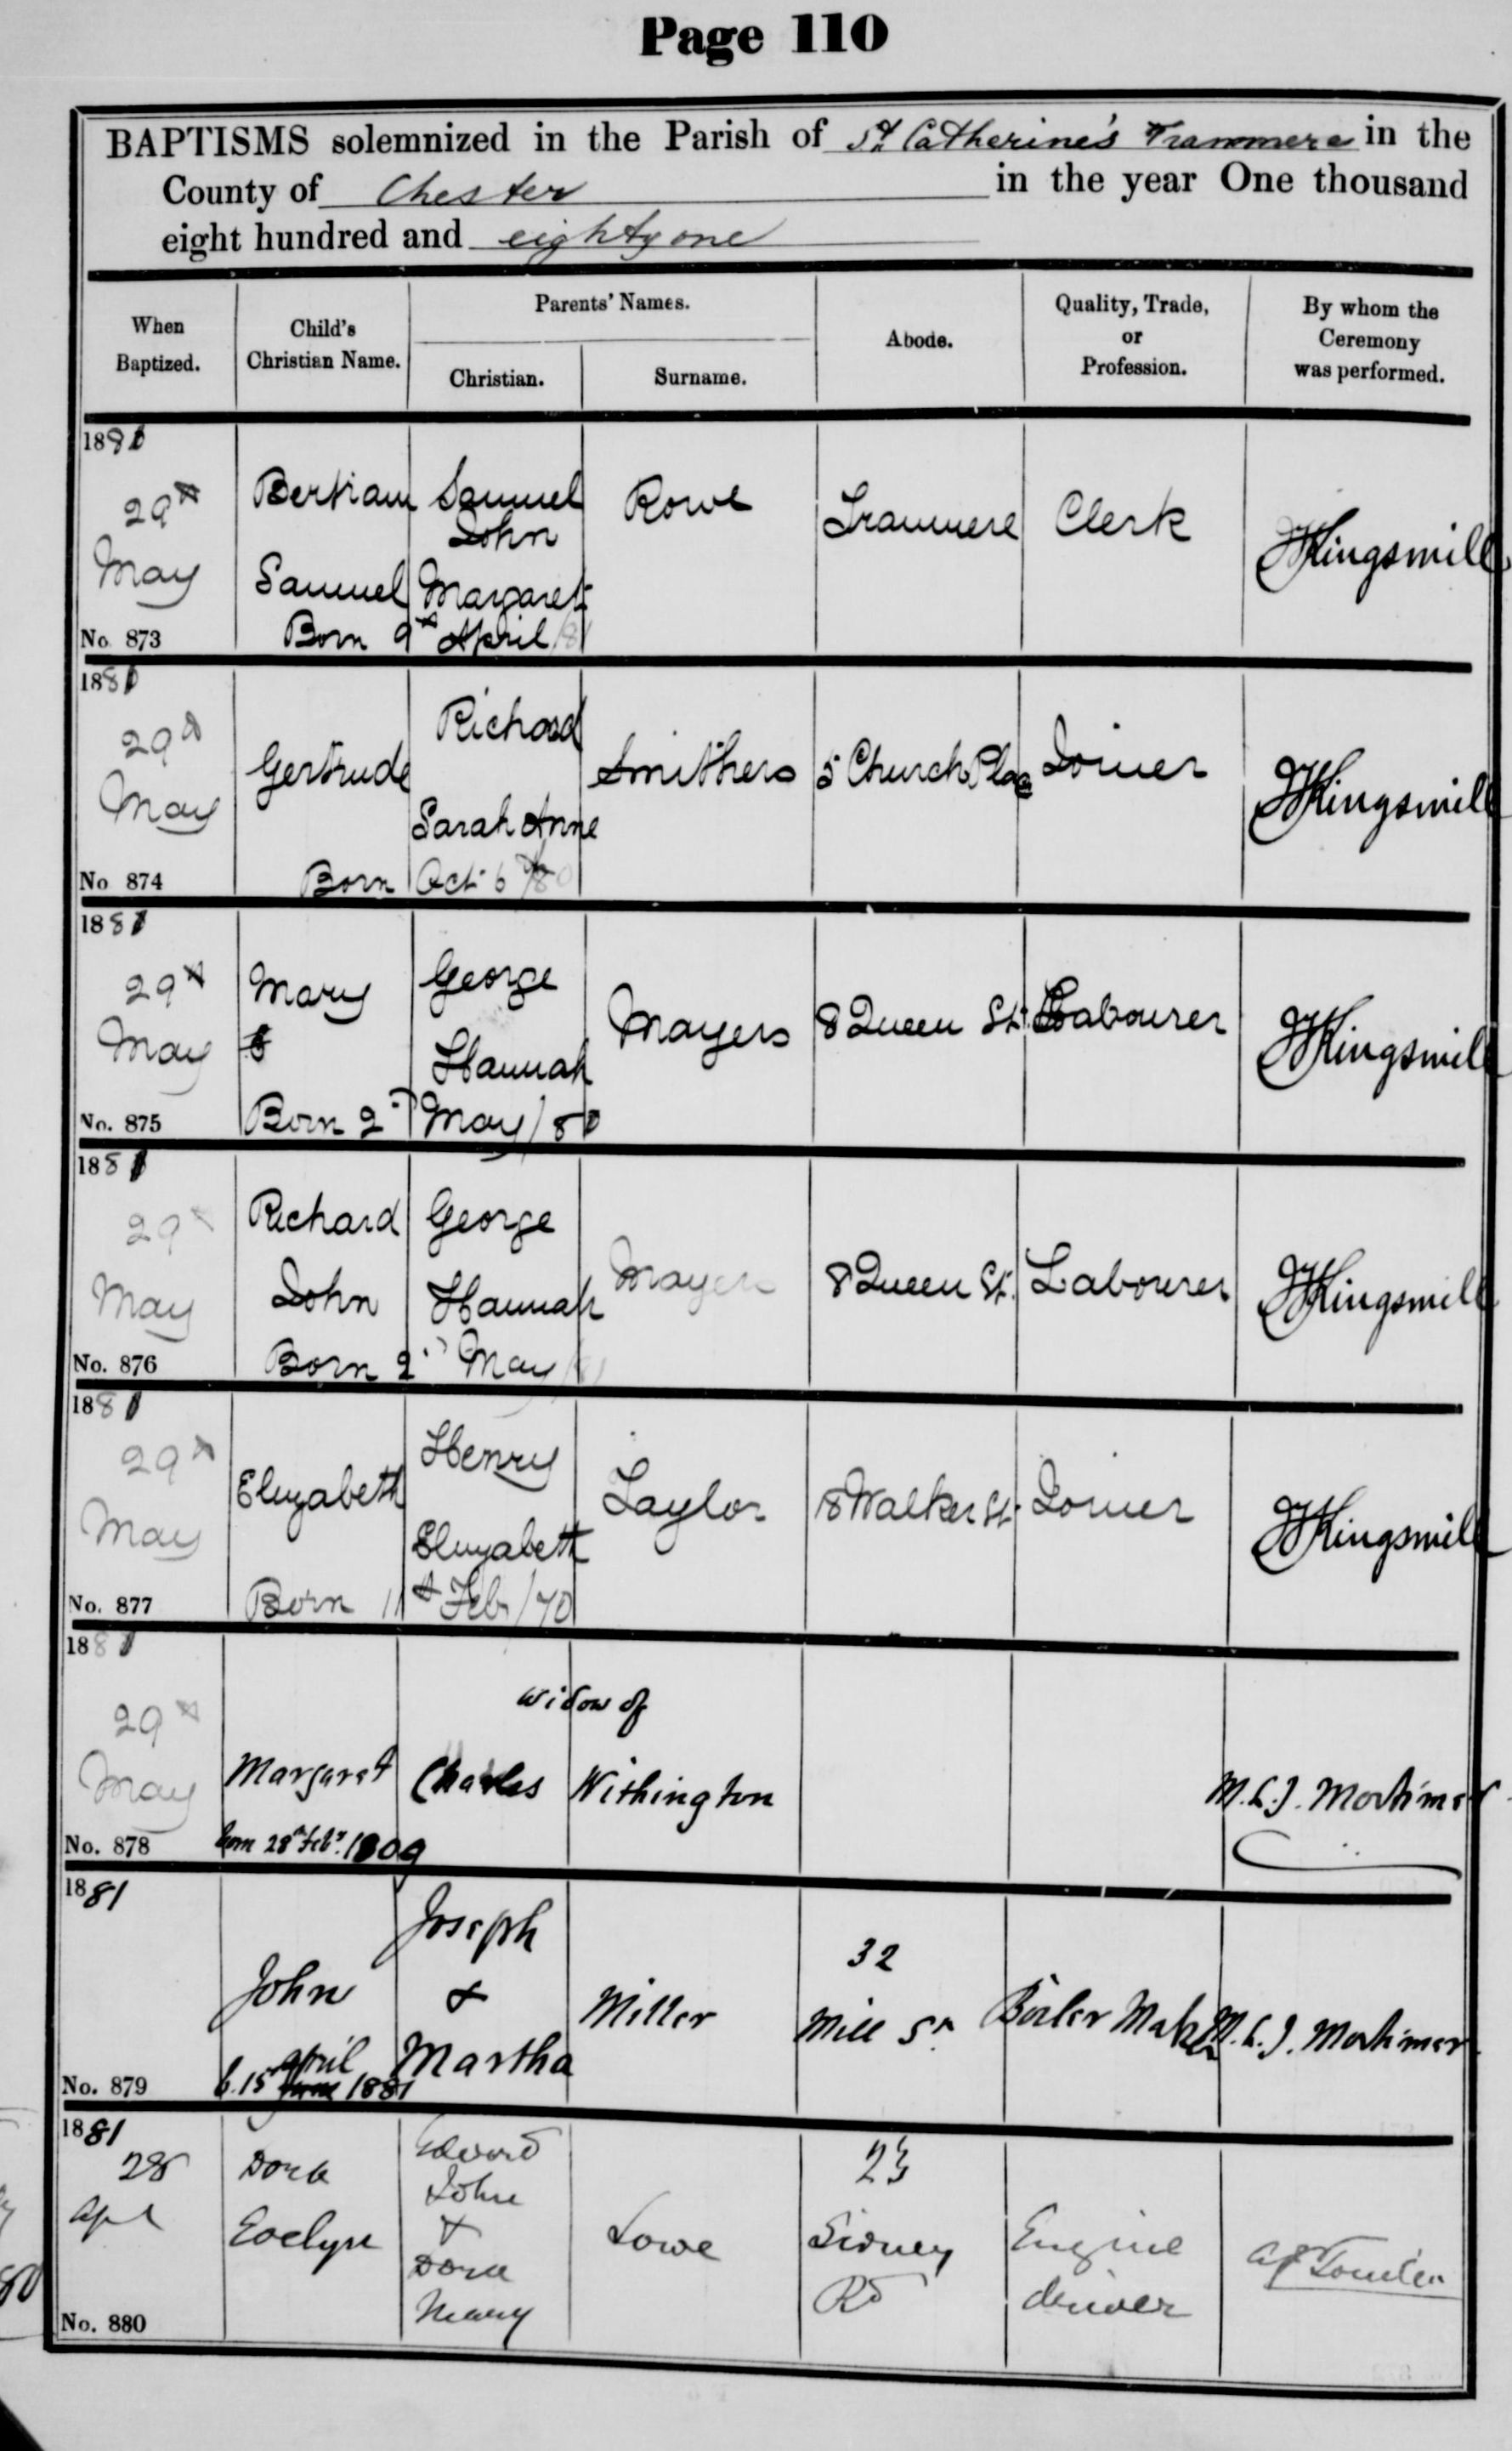 Page 110
BAPTISMS solemnized in the Parish of St Catherine's Tranmere in the
County of Chester in the year One thousand
eight hundred and eighty one
When Baptized. Child's Christian Name. Parents' Names. Christian. Surname. Abode. Quality, Trade, or Profession. By whom the Ceremony was performed.
1881
29th Bertram Samuel Rowe Tranmere Clerk Kingsmill
John
May Samuel Margaret
No. 873 Born 9th April /81
1881
29th Gertrude Richard Smithers 5 Church Place Joiner Kingsmill
May Sarah Anne
No 874 Born Oct. 6th /80
1881
29th Mary George Mayers 8 Queen St. Labourer Kingsmill
May Hannah
No. 875 Born 2nd May /80
1881
29th Richard George Mayers 8 Queen St. Labourer Kingsmill
May John Hannah
No. 876 Born 2nd May /81
1881
29th Elizabeth Henry Taylor 18 Walker St. Joiner Kingsmill
May Elizabeth
No. 877 Born 11th Feb /70
1881
29th widow of
May Margaret Charles Withington M.L.J. Mortimer
No. 878 born 28th Feby. 1809
1881
Joseph 32
John & Miller Mill St. Boiler Maker M.L.J. Mortimer
Martha
No. 879 b. 15 April June 1881
1881
28 Dora Edward 23
Apl Evelyn John Lowe Sidney Engine
& Rd driver
Dora
Mary
No. 880